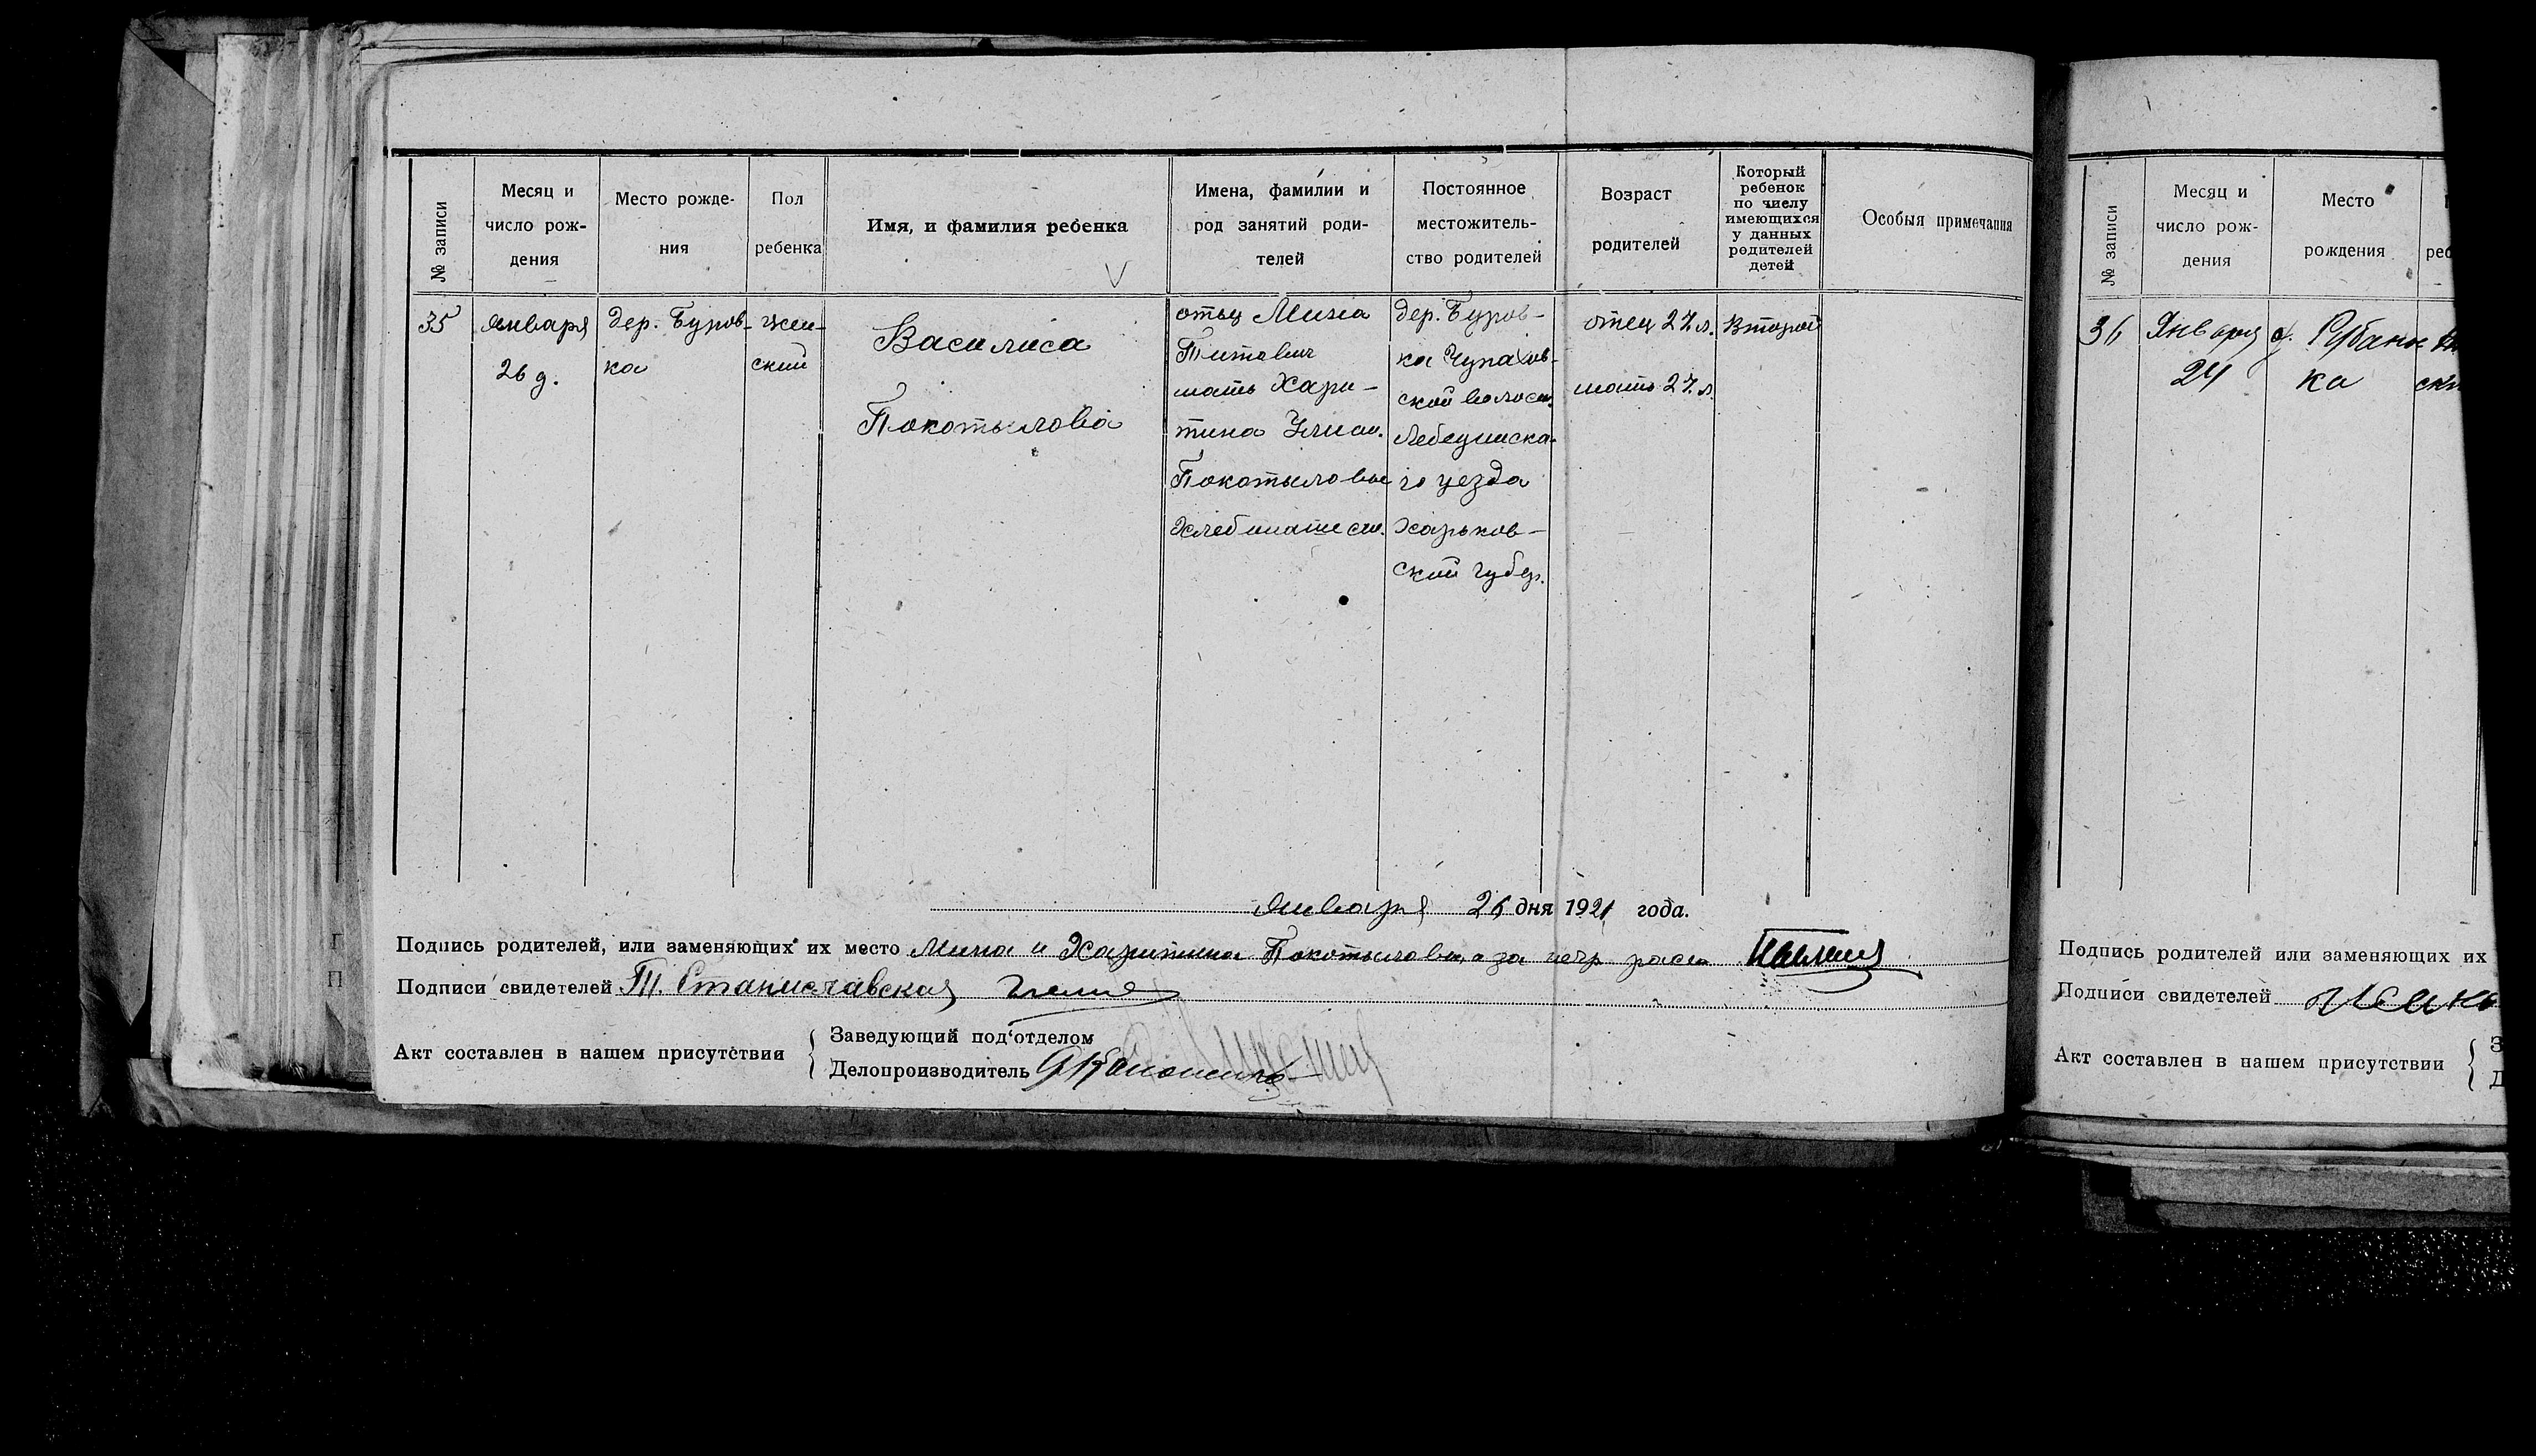 № записи
Месяц и
число рож-
дения
Место рожде-
ния
Пол
ребенка
Имя, и фамилия ребенка
Имена, фамилии и
род занятий роди-
телей
Постоянное
местожитель-
ство родителей
Возраст
родителей
Который
ребенок
по числу
имеющихся
у данных
родителей
детей
Особыя примечания
35
Января
26 д.
дер. Буров-
ка
жен-
ский
Василиса
Покотылова
отец Мина
Титович
мать Хари-
тина
Покотыловы
Хлебопашеси.
дер. Буров-
ка Чупахов-
ской волост.
Лебединска-
го уезда
Харьков-
ской губер.
отец 27 л.
мать 27 л.
Второй
Января 26 дня 1921 года.
Подпись родителей, или заменяющих их место Мина и Харитина Покотыловы, а за негр расп
Подписи свидетелей Т. Станиславская
Акт составлен в нашем присутствии
Заведующий под'отделом
Делопроизводитель
№ записи
Месяц и
число рож-
дения
Место
рождения
реб
36
Января
24
д. Рубан
ка
ски
Подпись родителей или заменяющих их
Подписи свидетелей
Акт составлен в нашем присутствии
З
Д